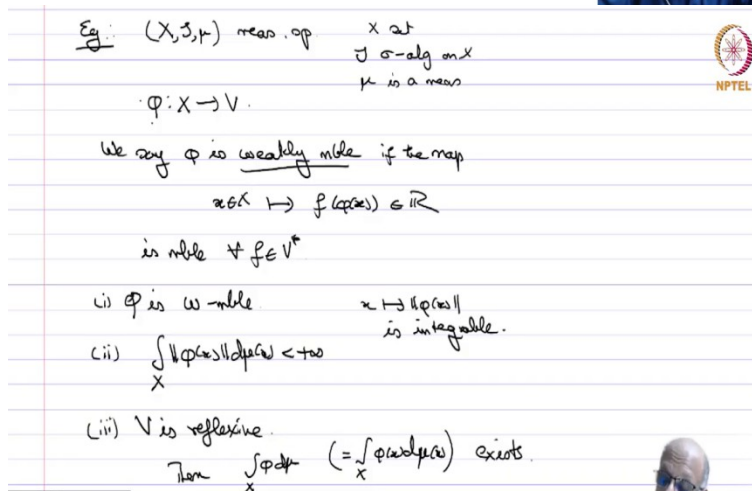 Eg: (X, S, μ) meas. sp. X set
S σ-alg on X
μ is a meas
NPTEL
φ: X → V.
We say φ is weakly mble if the map
x ∈ X ↦ f(φ(x)) ∈ ℝ
is mble ∀ f ∈ V*
(i) φ is w-mble. x ↦ ‖φ(x)‖
is integrable.
(ii) ∫_X ‖φ(x)‖ dμ(x) < +∞
(iii) V is reflexive.
Then ∫_X φ dμ (= ∫_X φ(x) dμ(x)) exists.